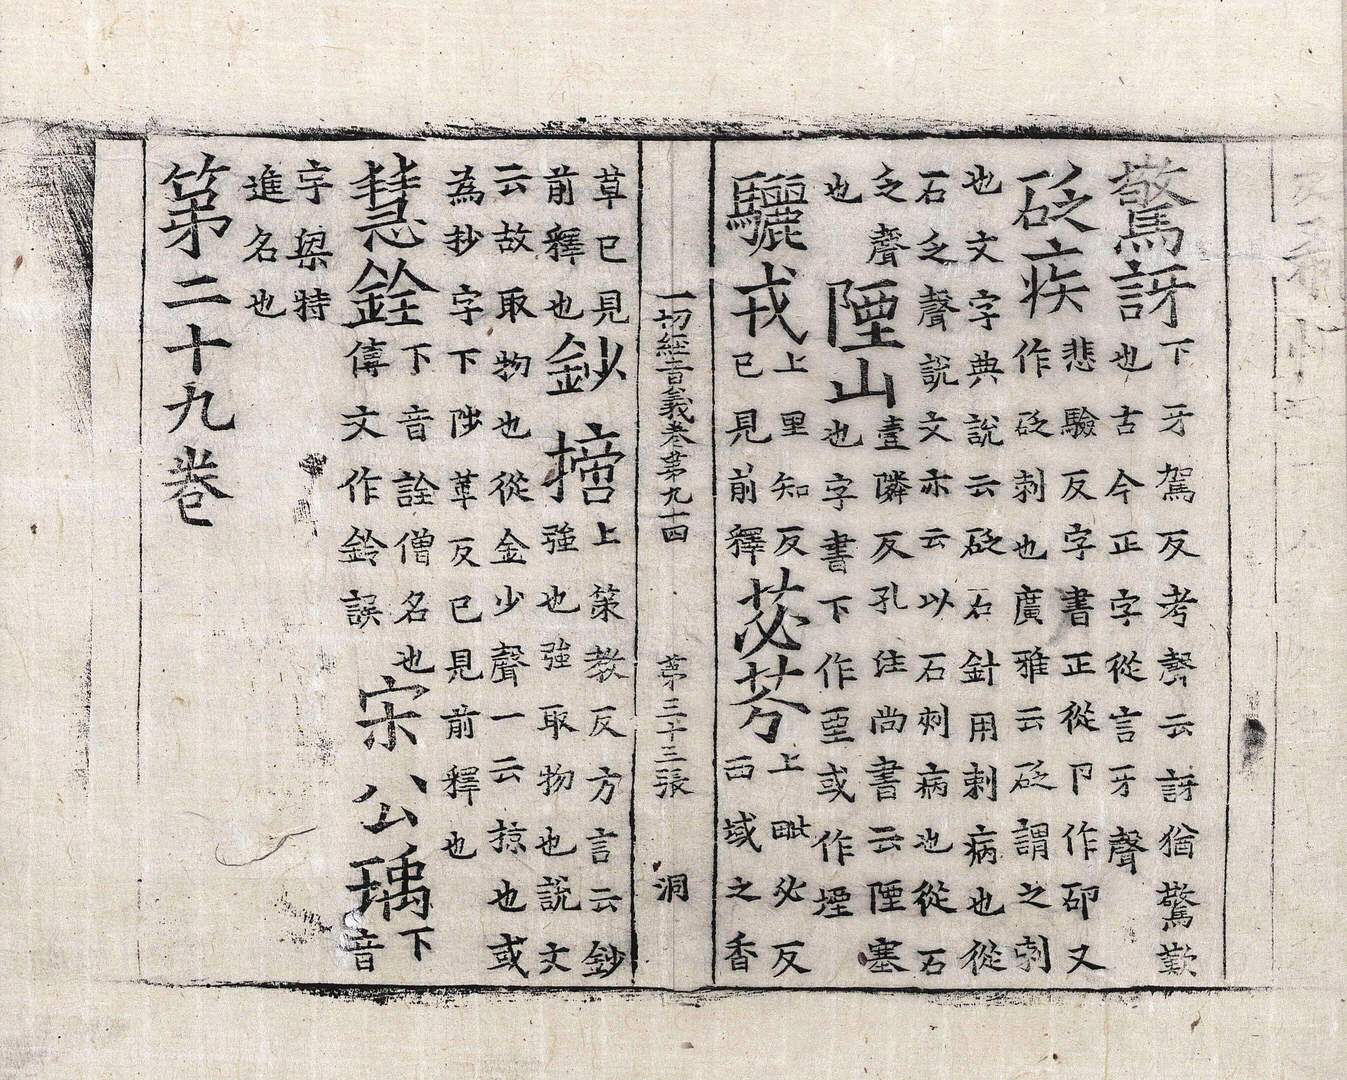 驚訝下牙駕反考聲云訝猶驚歎也古今正字從言牙聲
砭疾悲驗反字書正從卩作卬又作砭刺也廣雅云砭謂之刺
也文字典說云砭石針用刺病也從石乏聲說文亦云以石刺病也從石
乏聲也陻山壹隣反孔注尚書云陻塞也字書下作垔或作堙
驪戎上里知反已見前釋苾芬上毗必反西域之香
一切經音義卷第九十四 第三十三張 洞
草已見前釋也鈔摘上策教反方言云鈔強也強取物也說文
云故取物也從金少聲一云掠也或為抄字下陟革反已見前釋也
慧銓下音詮僧名也傳文作鈴誤宋公瑀下音
宇梁特進名也
第二十九卷